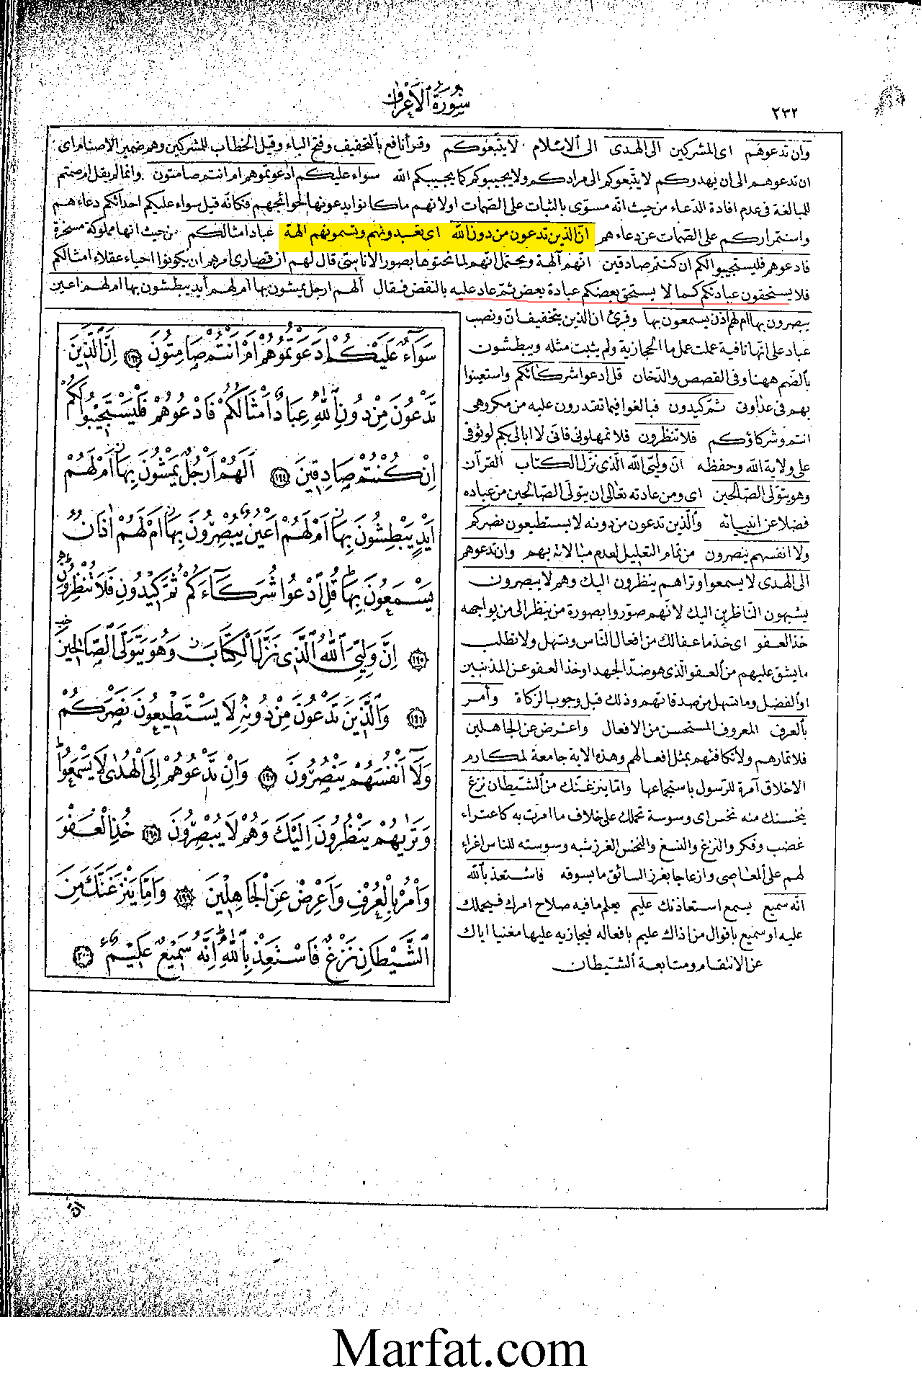 ٢٣٢
سورة الأعراف
وان تدعوهم اى المشركين الى الهدى الى الاسلام لا يتبعوكم وقرأ نافع بالتخفيف وفتح الباء وقيل الخطاب للمشركين وهم ضمير الاصنام اى
ان تدعوهم الى ان يهدوكم لا يتبعوكم الى مرادكم ولا يجيبوكم كما يجيبكم الله سواء عليكم ادعوتموهم ام انتم صامتون وانما لم يقل ام صمتم
للمبالغة فى عدم افادة الدعاء من حيث انه مسوى بالثبات على الصمات او لانهم ما كانوا يدعونها لحوائجهم فكانه قيل سواء عليكم احداثكم دعاءهم
واستمراركم على الصمات عن دعاءهم ان الذين تدعون من دون الله اى تعبدونهم وتسمونهم الهة عباد امثالكم من حيث انها مملوكة مسخرة
فادعوهم فليستجيبوا لكم ان كنتم صادقين انهم آلهة ويحتمل انهم لما نحتوها بصور الاناسى قال لهم ان قصارى امرهم ان يكونوا احياء عقلاء امثالكم
فلا يستحقون عبادتكم كما لا يستحق بعضكم عبادة بعض ثم عاد عليه بالنقض فقال ألهم ارجل يمشون بها ام لهم أيد يبطشون بها ام لهم اعين
يبصرون بها ام لهم اذن يسمعون بها وقرئ ان الذين بتخفيف ان ونصب
عباد على انها نافية عملت عمل ما الحجازية ولم يثبت مثله ويبطشون
بالضم ههنا وفى القصص والدخان قل ادعوا شركائكم واستعينوا
بهم فى عداوتى ثم كيدون فبالغوا فيما تقدرون عليه من مكروهى
انتم وشركاؤكم فلا تنظرون فلا تمهلونى فانى لا ابالى بكم لوثوقى
على ولاية الله وحفظه ان وليى الله الذى نزل الكتاب القرآن
وهو يتولى الصالحين اى ومن عادته تعالى ان يتولى الصالحين من عباده
فضلا عن انبيائه والذين تدعون من دونه لا يستطيعون نصركم
ولا انفسهم ينصرون من تمام التعليل لعدم مبالاته بهم وان تدعوهم
الى الهدى لا يسمعوا وتراهم ينظرون اليك وهم لا يبصرون
يشبهون الناظرين اليك لانهم صوروا بصورة من ينظر الى من يواجهه
خذ العفو اى خذ ما عفا لك من افعال الناس وتسهل ولا تطلب
ما يشق عليهم من العفو الذى هو ضد الجهد او خذ العفو عن المذنبين
او الفضل وما تسهل من صدقاتهم وذلك قبل وجوب الزكاة وأمر
بالعرف المعروف المستحسن من الافعال واعرض عن الجاهلين
فلا تمارهم ولا تكافئهم بمثل افعالهم وهذه الاية جامعة لمكارم
الاخلاق آمرة للرسول باستجماعها واما ينزغنك من الشيطان نزغ
ينخسنك منه نخس اى وسوسة تحملك على خلاف ما امرت به كاعتراء
غضب وفكر والنزغ والنسغ والنخس الغرز شبه وسوسته للناس اغراء
لهم على المعاصى وازعاجا بغرز السائق ما يسوقه فاستعذ بالله
انه سميع يسمع استعاذتك عليم يعلم ما فيه صلاح امرك فيحملك
عليه او سميع باقوال من اذاك عليم بافعاله فيجازيه عليها مغنيا اياك
عن الانتقام ومتابعة الشيطان
سَوَآءٌ عَلَيْكُمْ اَدَعَوْتُمُوهُمْ اَمْ اَنْتُمْ صَامِتُونَ ﴿١٩٣﴾ اِنَّ الَّذِينَ
تَدْعُونَ مِنْ دُونِ اللّٰهِ عِبَادٌ اَمْثَالُكُمْ فَادْعُوهُمْ فَلْيَسْتَجِيبُوا لَكُمْ
اِنْ كُنْتُمْ صَادِقِينَ ﴿١٩٤﴾ اَلَهُمْ اَرْجُلٌ يَمْشُونَ بِهَا اَمْ لَهُمْ
اَيْدٍ يَبْطِشُونَ بِهَا اَمْ لَهُمْ اَعْيُنٌ يُبْصِرُونَ بِهَا اَمْ لَهُمْ اٰذَانٌ
يَسْمَعُونَ بِهَا قُلِ ادْعُوا شُرَكَآءَكُمْ ثُمَّ كِيدُونِ فَلَا تُنْظِرُونِ
﴿١٩٥﴾ اِنَّ وَلِيِّيَ اللّٰهُ الَّذِى نَزَّلَ الْكِتَابَ وَهُوَ يَتَوَلَّى الصَّالِحِينَ
﴿١٩٦﴾ وَالَّذِينَ تَدْعُونَ مِنْ دُونِهِ لَا يَسْتَطِيعُونَ نَصْرَكُمْ
وَلَآ اَنْفُسَهُمْ يَنْصُرُونَ ﴿١٩٧﴾ وَاِنْ تَدْعُوهُمْ اِلَى الْهُدٰى لَا يَسْمَعُوا
وَتَرٰيهُمْ يَنْظُرُونَ اِلَيْكَ وَهُمْ لَا يُبْصِرُونَ ﴿١٩٨﴾ خُذِ الْعَفْوَ
وَأْمُرْ بِالْعُرْفِ وَاَعْرِضْ عَنِ الْجَاهِلِينَ ﴿١٩٩﴾ وَاِمَّا يَنْزَغَنَّكَ مِنَ
الشَّيْطَانِ نَزْغٌ فَاسْتَعِذْ بِاللّٰهِ اِنَّهُ سَمِيعٌ عَلِيمٌ ﴿٢٠٠﴾
ان
Marfat.com